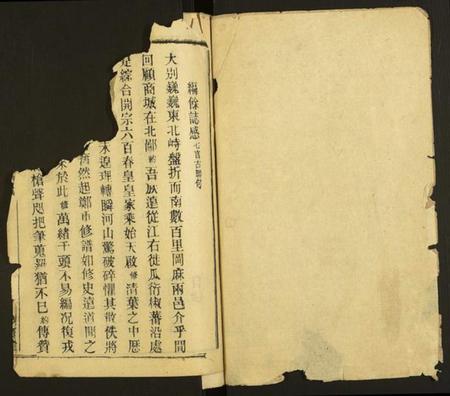 編餘誌感七言古體句
大別巍巍東北峙盤折而南數百里岡麻兩邑介乎間
回顧商城在北鄙吾族遠從江右徙瓜衍椒蕃沿處
是綜合開宗六百春皇皇家乘始天啟修清葉之中歷
未遑理轉瞬河山驚破碎懼其散佚將
然起鄭市修譜如修史遠道聞之
於此修萬緒千頭不易編况復戎
槍聲咫把筆蒐羅猶不已的傳贊